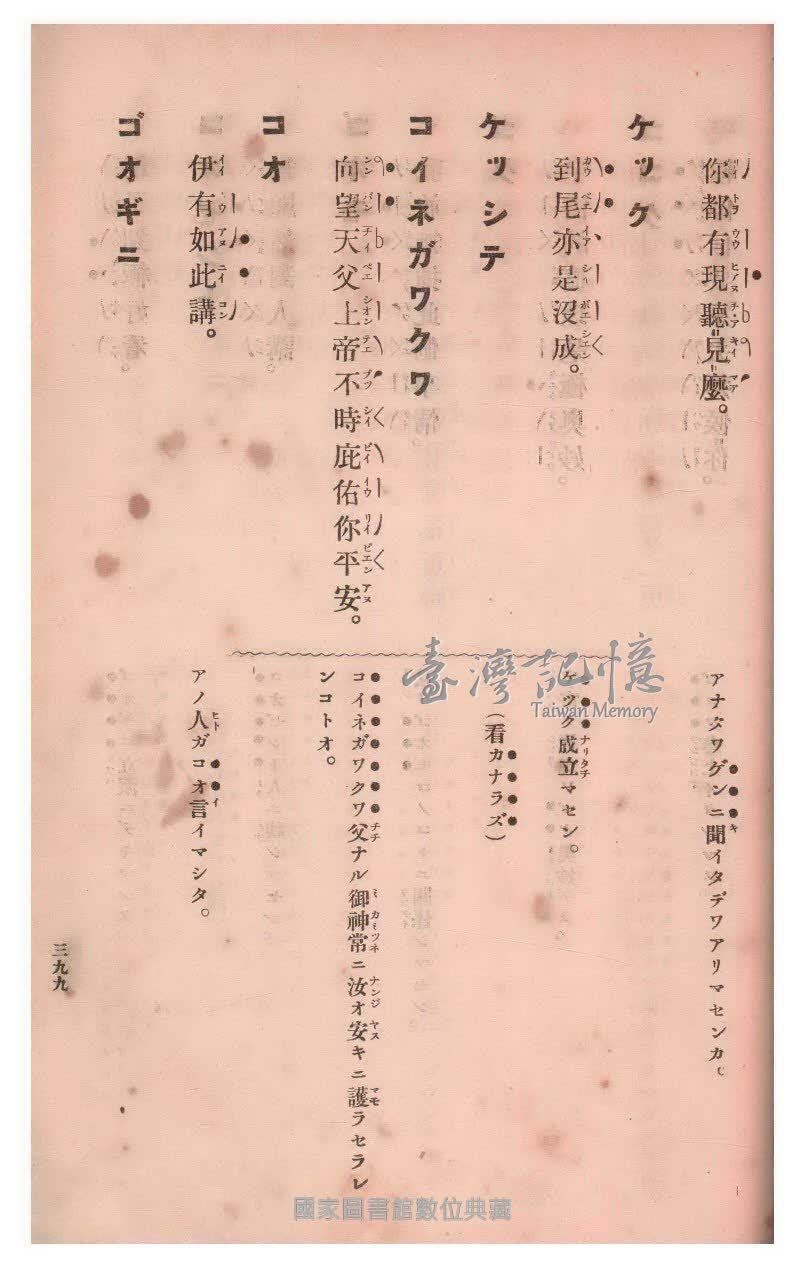 你都有現聽見麼。
アナタワゲンニ聞イタデワアリマセンカ。
ケック
到尾亦是沒成。
ケック成立マセン。
ケッシテ
(看カナラズ)
コイネガワクワ
向望天父上帝不時庇佑你平安。
コイネガワクワ父ナル御神常ニ汝オ安キニ護ラセラレ
ンコトオ。
コオ
伊有如此講。
アノ人ガコオ言イマシタ。
ゴオギニ
三九九
臺灣記憶
Taiwan Memory
國家圖書館數位典藏